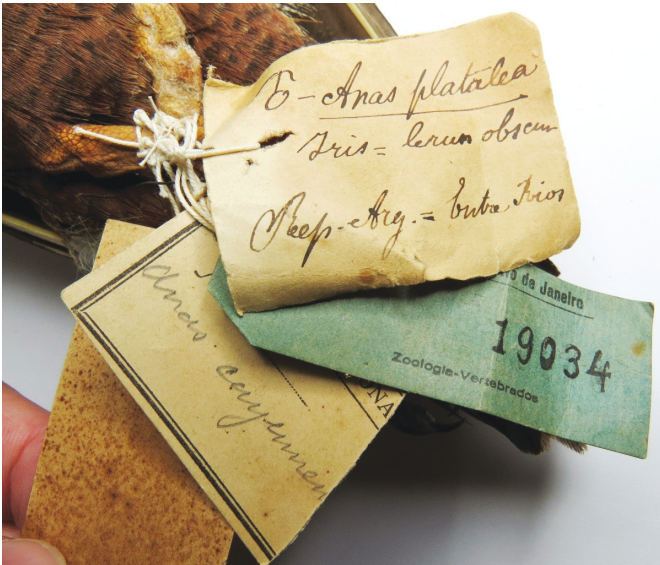 E - Anas platalea
Iris = brun obscur
Rep. Arg. = Entre Rios
de Janeiro
19034
Zoologia-Vertebrados
Anas
ONA